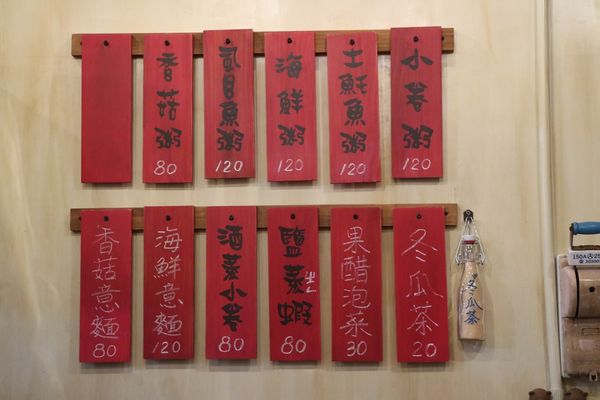 小卷粥
120
土魠魚粥
120
海鮮粥
120
虱目魚粥
120
香菇粥
80
冬瓜茶
20
果醋泡菜
30
鹽蒸蝦
80
酒蒸小卷
80
海鮮意麵
120
香菇意麵
80
冬瓜茶
150A